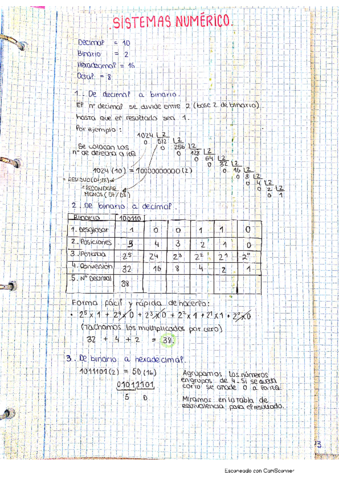 SISTEMAS NUMÉRICO.
Decimal = 10
Binario = 2
Hexadecimal = 16
Octal = 8
1. De decimal a binario.
El nº decimal se divide entre 2 (base 2 de binario).
hasta que el resultado sea 1.
Por ejemplo:
1024 2
0 512 2
0 256 2
0 128 2
0 64 2
0 32 2
0 16 2
0 8 2
0 4 2
0 2 2
0 1
Se colocan los
nº de derecha a izq.
1024 (10) = 10000000000 (2)
2. De binario a decimal.
Binario 100110
1. Desglosar 1 0 0 1 1 0
2. Posiciones 5 4 3 2 1 0
3. Potencia 2⁵ 2⁴ 2³ 2² 2¹ 2⁰
4. Conversión 32 16 8 4 2 1
5. Nº Decimal 38
Forma fácil y rápida de hacerlo:
· 2⁵x1 + 2⁴x0 + 2³x0 + 2²x1 + 2¹x1 + 2⁰x0
(Tachamos los multiplicados por cero)
32 + 4 + 2 = 38
3. De binario a hexadecimal.
1011101 (2) = 5D (16)
01011101
5 D
Agrupamos los números
en grupos de 4. Si se queda
cojo se añade 0 a la izq.
Miramos en la tabla de
equivalencia para el resultado.
3
Escaneado con CamScanner